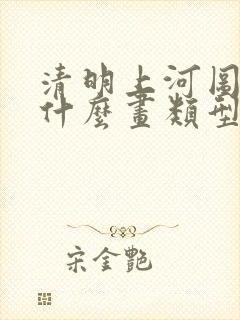 清明上河图
什麼畫類型
宋金艷